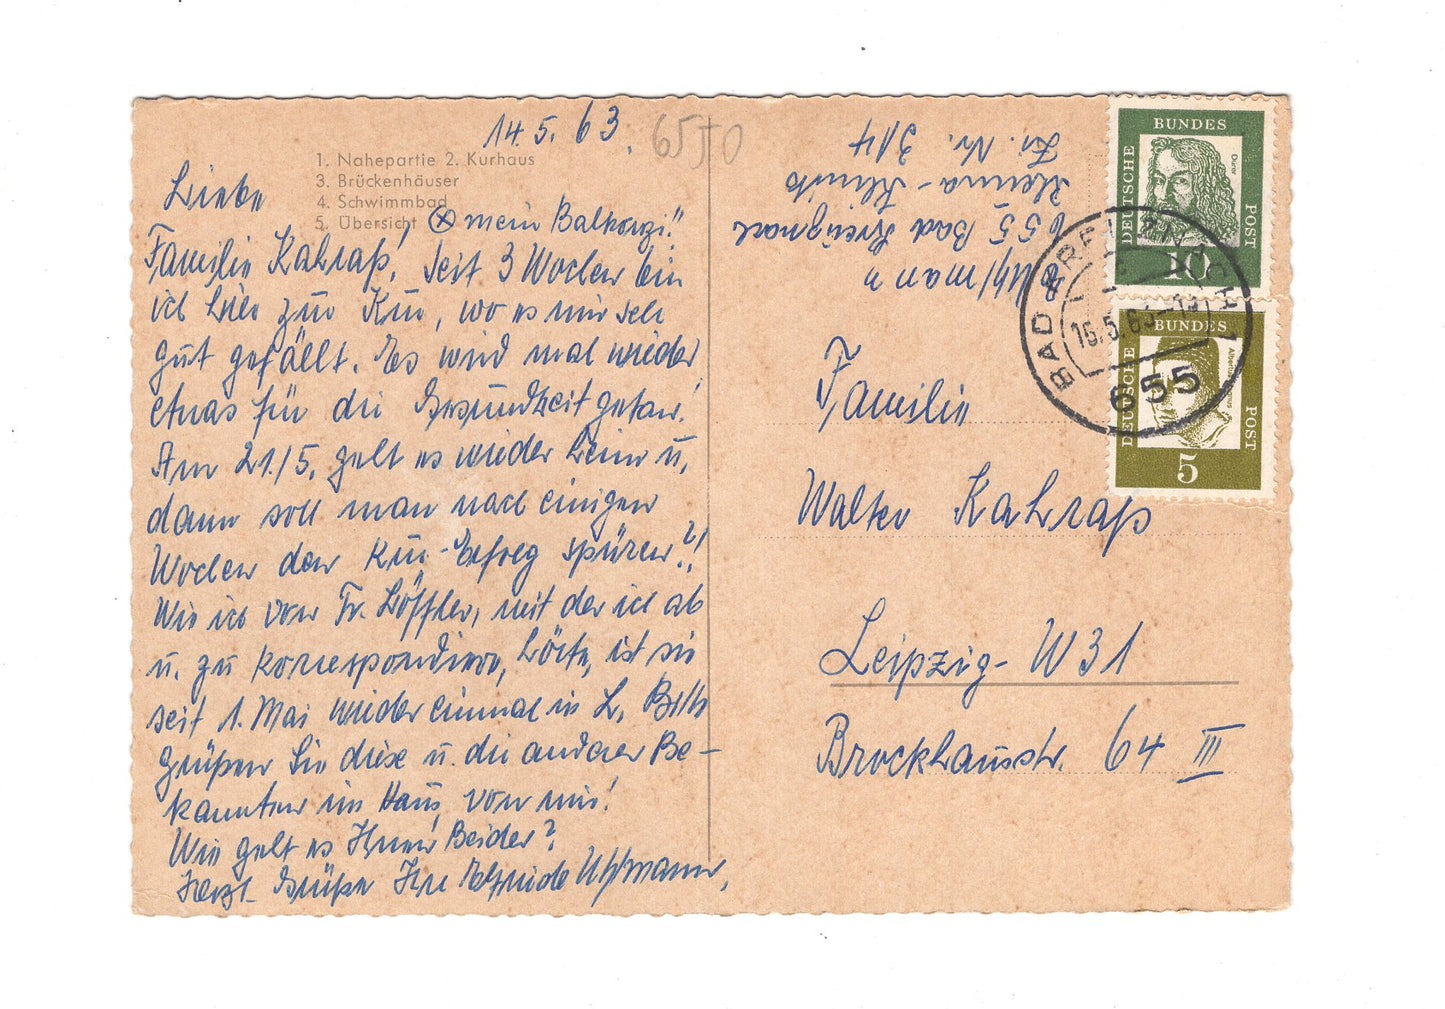 14.5.63.
6550
1. Nahepartie 2. Kurhaus
3. Brückenhäuser
4. Schwimmbad
5. Übersicht
⊗ mein Balkonzi!!
Liebe
Familie Kahraß! Seit 3 Wochen bin
ich hier zur Kur, wo es mir sehr
gut gefällt. Es wird mal wieder
etwas für die Gesundheit getan!
Am 21./5. geht es wieder heim u.
dann soll man nach einigen
Wochen den Kur-Erfolg spüren?!
Wie ich von Fr. Löffler, mit der ich ab
u. zu korrespondiere, hörte, ist sie
seit 1. Mai wieder einmal in L. Bitte
grüßen Sie diese u. die anderen Be-
kannten im Haus von mir!
Wie geht es Ihnen Beiden?
Herzl. Grüße Ihre Elfriede
Zi. Nr. 314
Klinik
655 Bad Kreuznach
DEUTSCHE
BUNDES
POST
Dürer
10
DEUTSCHE
BUNDES
POST
5
BAD KREUZNACH
655
Familie
Walter Kahraß
Leipzig-W31
Brockhausstr. 64 III